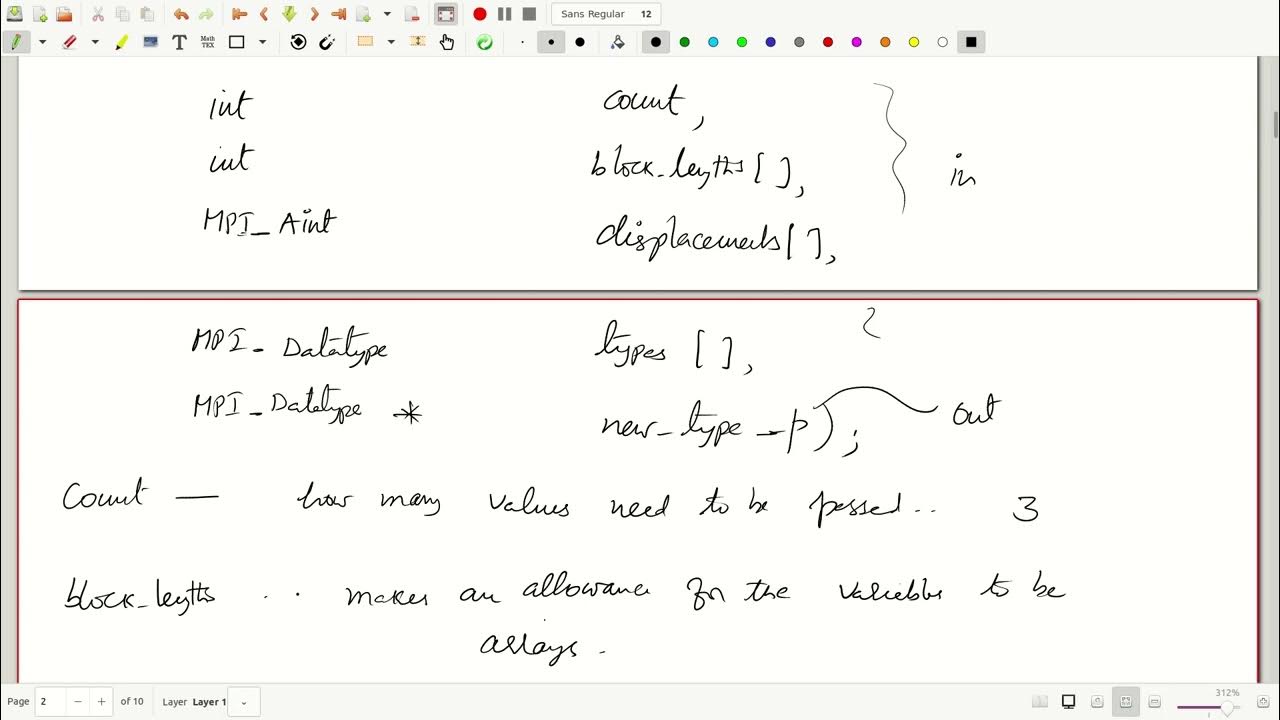 Sans Regular 12
int count,
int block_legths[],
in
MPI_Aint displacements[],
MPI_Datatype types [],
MPI_Datatype * new_type_p);
out
Count — how many values need to be passed.. 3
block_legths .. makes an allowance for the variables to be
arrays.
Page 2 of 10 Layer Layer 1 312%